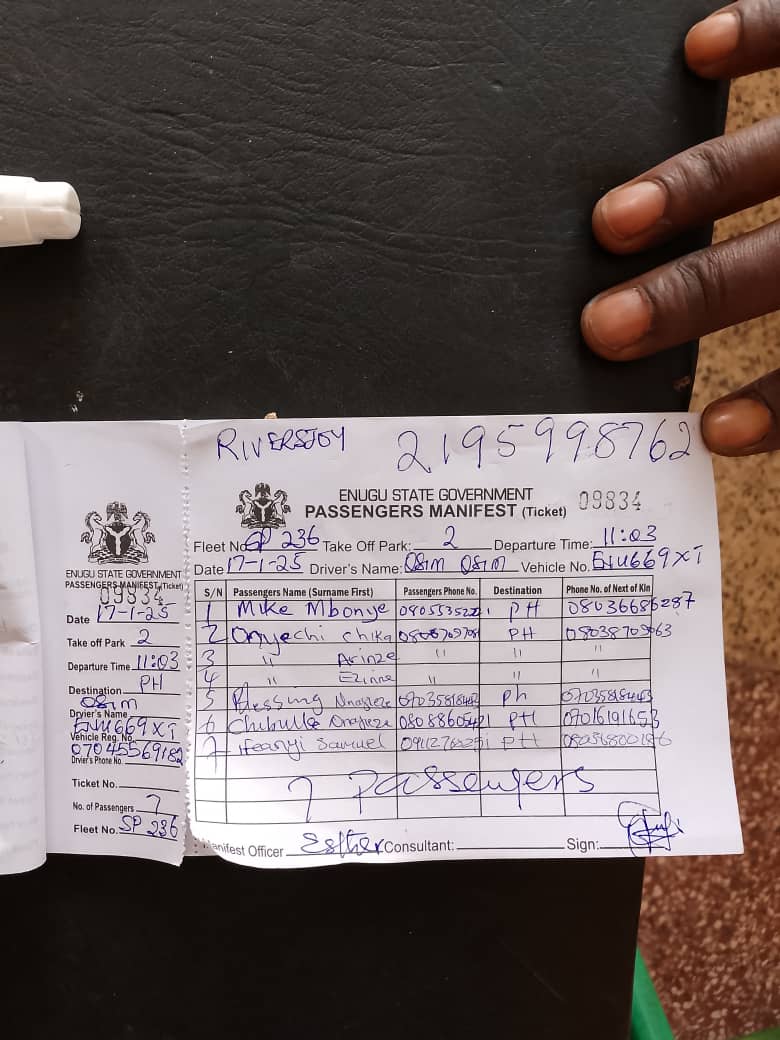 RIVERSJOY 2195998762
ENUGU STATE GOVERNMENT
PASSENGERS MANIFEST (Ticket) 09834
Fleet No. SP 236 Take Off Park: 2 Departure Time: 11:03
Date 17-1-25 Driver's Name: Osim Osim Vehicle No. ENU669XT
S/N Passengers Name (Surname First) Passengers Phone No. Destination Phone No. of Next of Kin
1 Mike Mbonye PH 08036686287
2 Onyechi Chika PH
3 " Arinze " " "
4 " Ezinne " " "
5 Blessing Ph
6 PH
7 Ifeanyi Samuel PH
7 Passengers
Manifest Officer Esther Consultant: Sign:
ENUGU STATE GOVERNMENT
PASSENGERS MANIFEST (Ticket)
09834
Date 17-1-25
Take off Park 2
Departure Time 11:03
Destination PH
Osim
Drvier's Name
ENU669XT
Vehicle Reg. No.
07045569182
Drvier's Phone No.
Ticket No.
No. of Passengers 7
Fleet No. SP 236